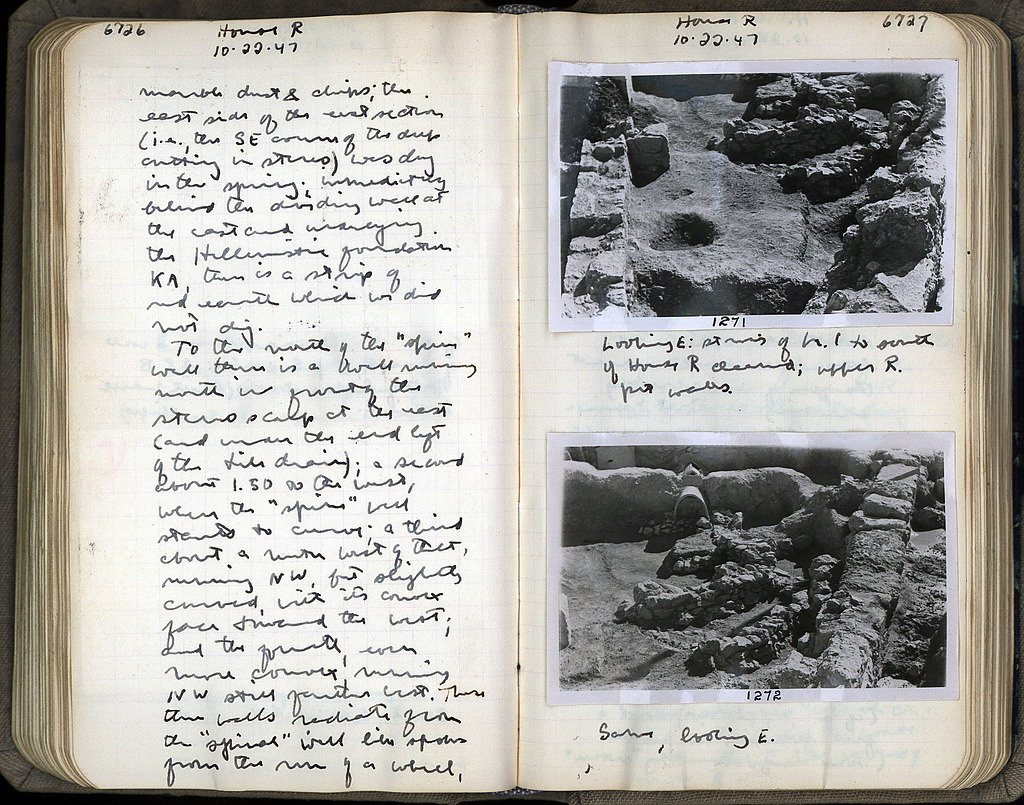 6726
House R
10.22.47
marble dust & chips; the
east side of the east section
(i.e., the SE corner of the deep
cutting in stereo) was dug
in the spring; immediately
behind the dividing wall at
the east and underlying
the Hellenistic foundation
KA, there is a strip of
red earth which we did
not dig.
To the north of the "spine"
wall there is a wall running
north in front of the
stereo scarp at the east
(and under the end left
of the tile drain); a second
about 1.50 to the west,
where the "spine" wall
starts to curve; a third
about a meter west of that,
running NW, but slightly
curved, with its convex
face toward the west;
and the fourth, even
more convex, running
NW still farther west. These
three walls radiate from
the "spinal" wall like spokes
from the rim of a wheel,
House R
10.22.47
6727
1271
Looking E: stereo of to south
of House R cleaned; upper R.
pit walls.
1272
Same, looking E.